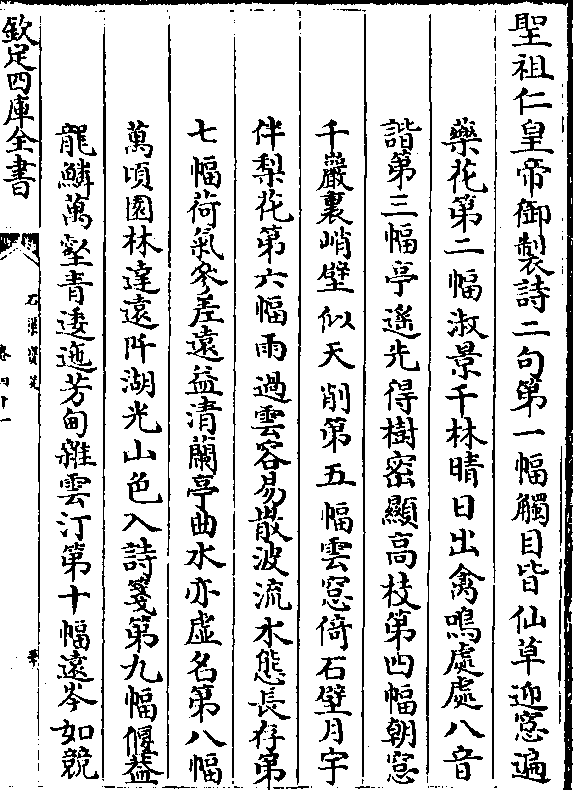 聖祖仁皇帝御製詩二句第一幅觸目皆仙草迎窓遍
藥花第二幅淑景千林晴日出禽鳴處處八音
諧第三幅亭遥先得樹密顯高枝第四幅朝窓
千巖裏峭壁似天削第五幅雲窓倚石壁月宇
伴梨花第六幅雨過雲容易散波流水態長存第
七幅荷氣參差遠益清蘭亭曲水亦虛名第八幅
萬頃園林達遠阡湖光山色入詩箋第九幅偃葢
龍鱗萬壑青逶迤芳甸雜雲汀第十幅遠岑如競
欽定四庫全書
石渠寶笈
卷四十一